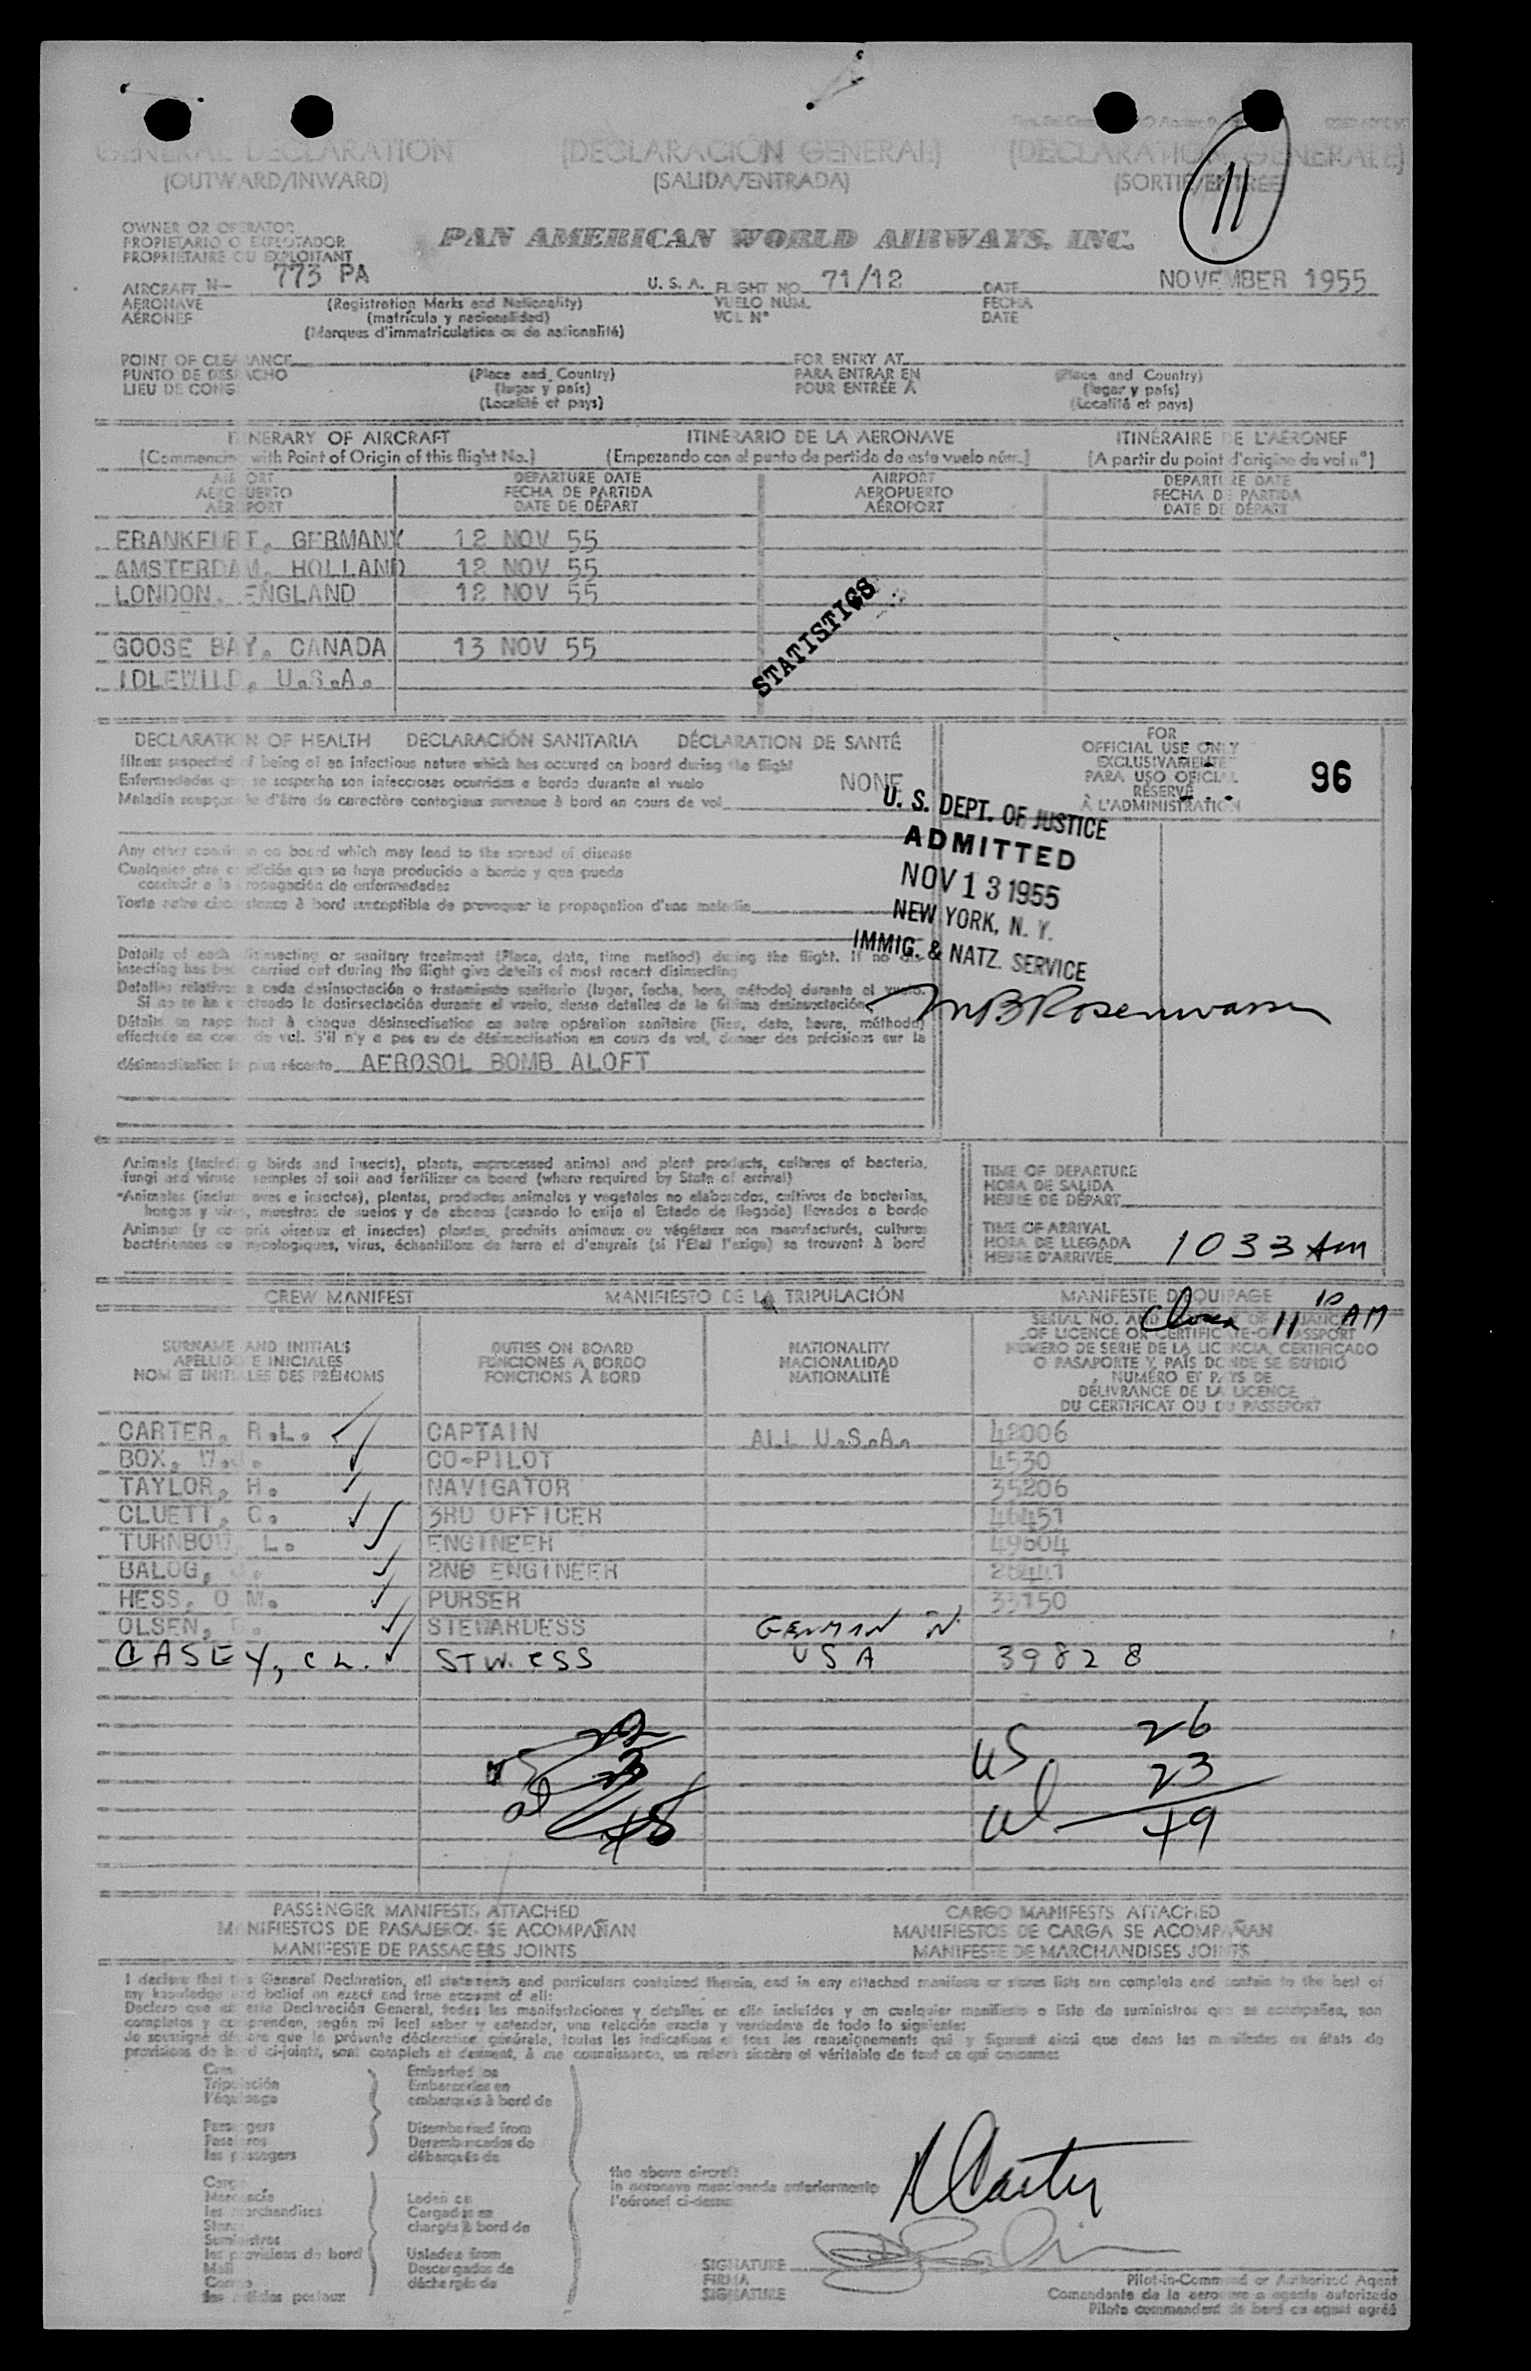 GENERAL DECLARATION (DECLARACIÓN GENERAL) (DECLARATION GENERALE)
(OUTWARD/INWARD) (SALIDA/ENTRADA) (SORTIE/ENTREE)
11
OWNER OR OPERATOR
PROPIETARIO O EXPLOTADOR
PROPRIETAIRE OU EXPLOITANT
PAN AMERICAN WORLD AIRWAYS, INC.
AIRCRAFT N- 773 PA U. S. A. FLIGHT NO. 71/12 DATE NOVEMBER 1955
AERONAVE (Registration Marks and Nationality) VUELO NUM. FECHA
AÉRONEF (matrícula y nacionalidad) VOL N° DATE
(Marques d'immatriculation ou de nationalité)
POINT OF CLEARANCE FOR ENTRY AT
PUNTO DE DESPACHO (Place and Country) PARA ENTRAR EN (Place and Country)
LIEU DE CONG (lugar y país) POUR ENTRÉE À (lugar y país)
(Localité et pays) (Localité et pays)
ITINERARY OF AIRCRAFT ITINERARIO DE LA AERONAVE ITINÉRAIRE DE L'AÉRONEF
(Commencing with Point of Origin of this flight No.) (Empezando con el punto de partida de este vuelo núm.) (A partir du point d'origine du vol n°)
AIRPORT DEPARTURE DATE AIRPORT DEPARTURE DATE
AEROPUERTO FECHA DE PARTIDA AEROPUERTO FECHA DE PARTIDA
AÉROPORT DATE DE DÉPART AÉROPORT DATE DE DÉPART
FRANKFURT, GERMANY 12 NOV 55
AMSTERDAM, HOLLAND 12 NOV 55
LONDON, ENGLAND 12 NOV 55
STATISTICS
GOOSE BAY, CANADA 13 NOV 55
IDLEWILD, U.S.A.
DECLARATION OF HEALTH DECLARACIÓN SANITARIA DÉCLARATION DE SANTÉ
FOR
OFFICIAL USE ONLY
EXCLUSIVAMENTE
PARA USO OFICIAL
RÉSERVÉ
À L'ADMINISTRATION
96
Illness suspected of being of an infectious nature which has occured on board during the flight
Enfermedades que se sospecha son infecciosas ocurridas a bordo durante el vuelo NONE
Maladie soupçonnée d'être de caractère contagieux survenue à bord en cours de vol
U. S. DEPT. OF JUSTICE
ADMITTED
NOV 13 1955
NEW YORK, N. Y.
IMMIG. & NATZ. SERVICE
Any other condition on board which may lead to the spread of disease
Cualquier otra condición que se haya producido a bordo y que pueda
conducir a la propagación de enfermedades
Toute autre circonstance à bord susceptible de provoquer la propagation d'une maladie
Details of each disinsecting or sanitary treatment (Place, date, time method) during the flight. If no dis-
insecting has been carried out during the flight give details of most recent disinsecting
Detalles relativos a cada desinsectación o tratamiento sanitario (lugar, fecha, hora, método) durante el vuelo.
Si no se ha efectuado la desinsectación durante el vuelo, dense detalles de la última desinsectación
Détails se rapportant à chaque désinsectisation ou autre opération sanitaire (lieu, date, heure, méthode)
effectuée en cours de vol. S'il n'y a pas eu de désinsectisation en cours de vol, donner des précisions sur la
désinsectisation la plus récente AEROSOL BOMB ALOFT
MB Rosenwasser
Animals (including birds and insects), plants, unprocessed animal and plant products, cultures of bacteria,
fungi and viruses, samples of soil and fertilizer on board (where required by State of arrival)
Animales (inclusive aves e insectos), plantas, productos animales y vegetales no elaborados, cultivos de bacterias,
hongos y virus, muestras de suelos y de abonos (cuando lo exija el Estado de llegada) llevados a bordo
Animaux (y compris oiseaux et insectes) plantes, produits animaux ou végétaux non manufacturés, cultures
bactériennes ou mycologiques, virus, échantillons de terre et d'engrais (si l'Etat l'exige) se trouvant à bord
TIME OF DEPARTURE
HORA DE SALIDA
HEURE DE DÉPART
TIME OF ARRIVAL
HORA DE LLEGADA
HEURE D'ARRIVÉE 1033 AM
CREW MANIFEST MANIFIESTO DE LA TRIPULACIÓN MANIFESTE D'ÉQUIPAGE
11 10 AM
SURNAME AND INITIALS DUTIES ON BOARD NATIONALITY
APELLIDO E INICIALES FUNCIONES A BORDO NACIONALIDAD
NOM ET INITIALES DES PRÉNOMS FONCTIONS À BORD NATIONALITÉ
SERIAL NO. AND OF ISSUANCE
OF LICENCE OR CERTIFICATE OF PASSPORT
NÚMERO DE SERIE DE LA LICENCIA, CERTIFICADO
O PASAPORTE Y PAÍS DONDE SE EXPIDIÓ
NUMÉRO ET PAYS DE
DÉLIVRANCE DE LA LICENCE
DU CERTIFICAT OU DU PASSEPORT
CARTER, R.L. CAPTAIN ALL U.S.A. 42006
BOX, W.J. CO-PILOT 4530
TAYLOR, H. NAVIGATOR 35206
CLUETT, C. 3RD OFFICER 40451
TURNBOW, L. ENGINEER 49604
BALOG, 2ND ENGINEER
HESS, O M. PURSER 33150
OLSEN, STEWARDESS GERMAN
CASEY, C L. STW. ESS USA 39828
US 26
al 23
49
48
PASSENGER MANIFESTS ATTACHED CARGO MANIFESTS ATTACHED
MANIFIESTOS DE PASAJEROS SE ACOMPAÑAN MANIFIESTOS DE CARGA SE ACOMPAÑAN
MANIFESTE DE PASSAGERS JOINTS MANIFESTE DE MARCHANDISES JOINTS
I declare that this General Declaration, all statements and particulars contained therein, and in any attached manifests or stores lists are complete and contain to the best of
my knowledge and belief an exact and true account of all:
Declaro que en esta Declaración General, todas las manifestaciones y detalles en ella incluidos y en cualquier manifiesto o lista de suministros que se acompañen, son
completos y comprenden, según mi leal saber y entender, una relación exacta y verdadera de todo lo siguiente:
Je soussigné déclare que la présente déclaration générale, toutes les indications et tous les renseignements qui y figurent ainsi que dans les manifestes ou états de
provisions de bord ci-joints, sont complets et donnent, à ma connaissance, un relevé sincère et véritable de tout ce qui concerne:
Crew Embarked on
Tripulación Embarcados en
l'équipage embarqués à bord de
Passengers Disembarked from
Pasajeros Desembarcados de
les passagers débarqués de
the above aircraft
la aeronave mencionada anteriormente
l'aéronef ci-dessus
Cargo
Mercancía Laden on
les marchandises Cargados en
Stores chargés à bord de
Suministros
les provisions de bord Unladen from
Mail Descargados de
Correo déchargés de
les articles postaux
R Carter
SIGNATURE
FIRMA
SIGNATURE
Pilot-in-Command or Authorized Agent
Comandante de la aeronave o agente autorizado
Pilote commandant de bord ou agent agréé